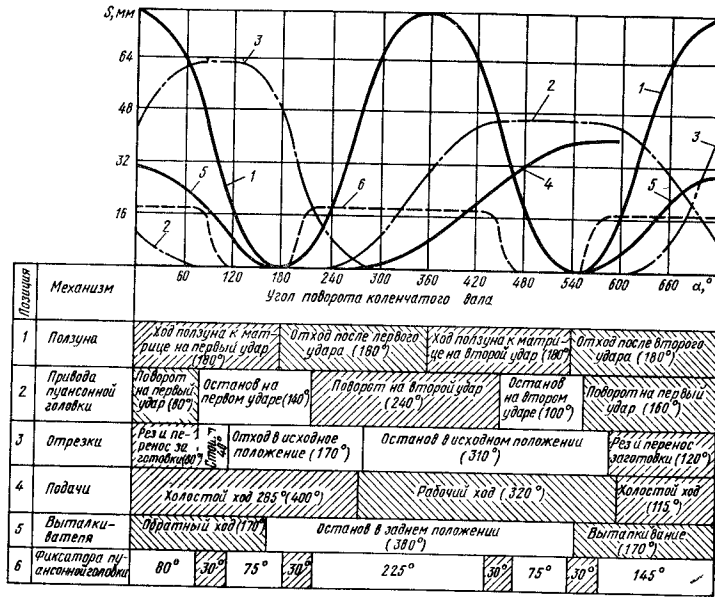 S, мм
64
48
32
16
3
2
1
5
1
2
6
4
3
5
60 120 180 240 300 360 420 480 540 600 660 α,°
Угол поворота коленчатого вала
Позиция
Механизм
1
Ползуна
Ход ползуна к мат-
рице на первый удар
(180°)
Отход после первого
удара (180°)
Ход ползуна к матри-
це на второй удар (180°)
Отход после второго
удара (180°)
2
Привода
пуансонной
головки
Поворот
на первый
удар (80°)
Останов на
первом ударе (140°)
Поворот на второй удар
(240°)
Останов
на втором
ударе (100°)
Поворот на первый
удар (160°)
3
Отрезки
Рез и пе-
ренос за
готовки (80°)
40°
Отход в исходное
положение (170°)
Останов в исходном положении
(310°)
Рез и перенос
заготовки (120°)
4
Подачи
Холостой ход 285° (400°)
Рабочий ход (320°)
Холостой ход
(115°)
5
Выталки-
вателя
Обратный ход (170°)
Останов в заднем положении
(380°)
Выталкивание
(170°)
6
Фиксатора пу-
ансонной головки
80° 30° 75° 30° 225° 30° 75° 30° 145°